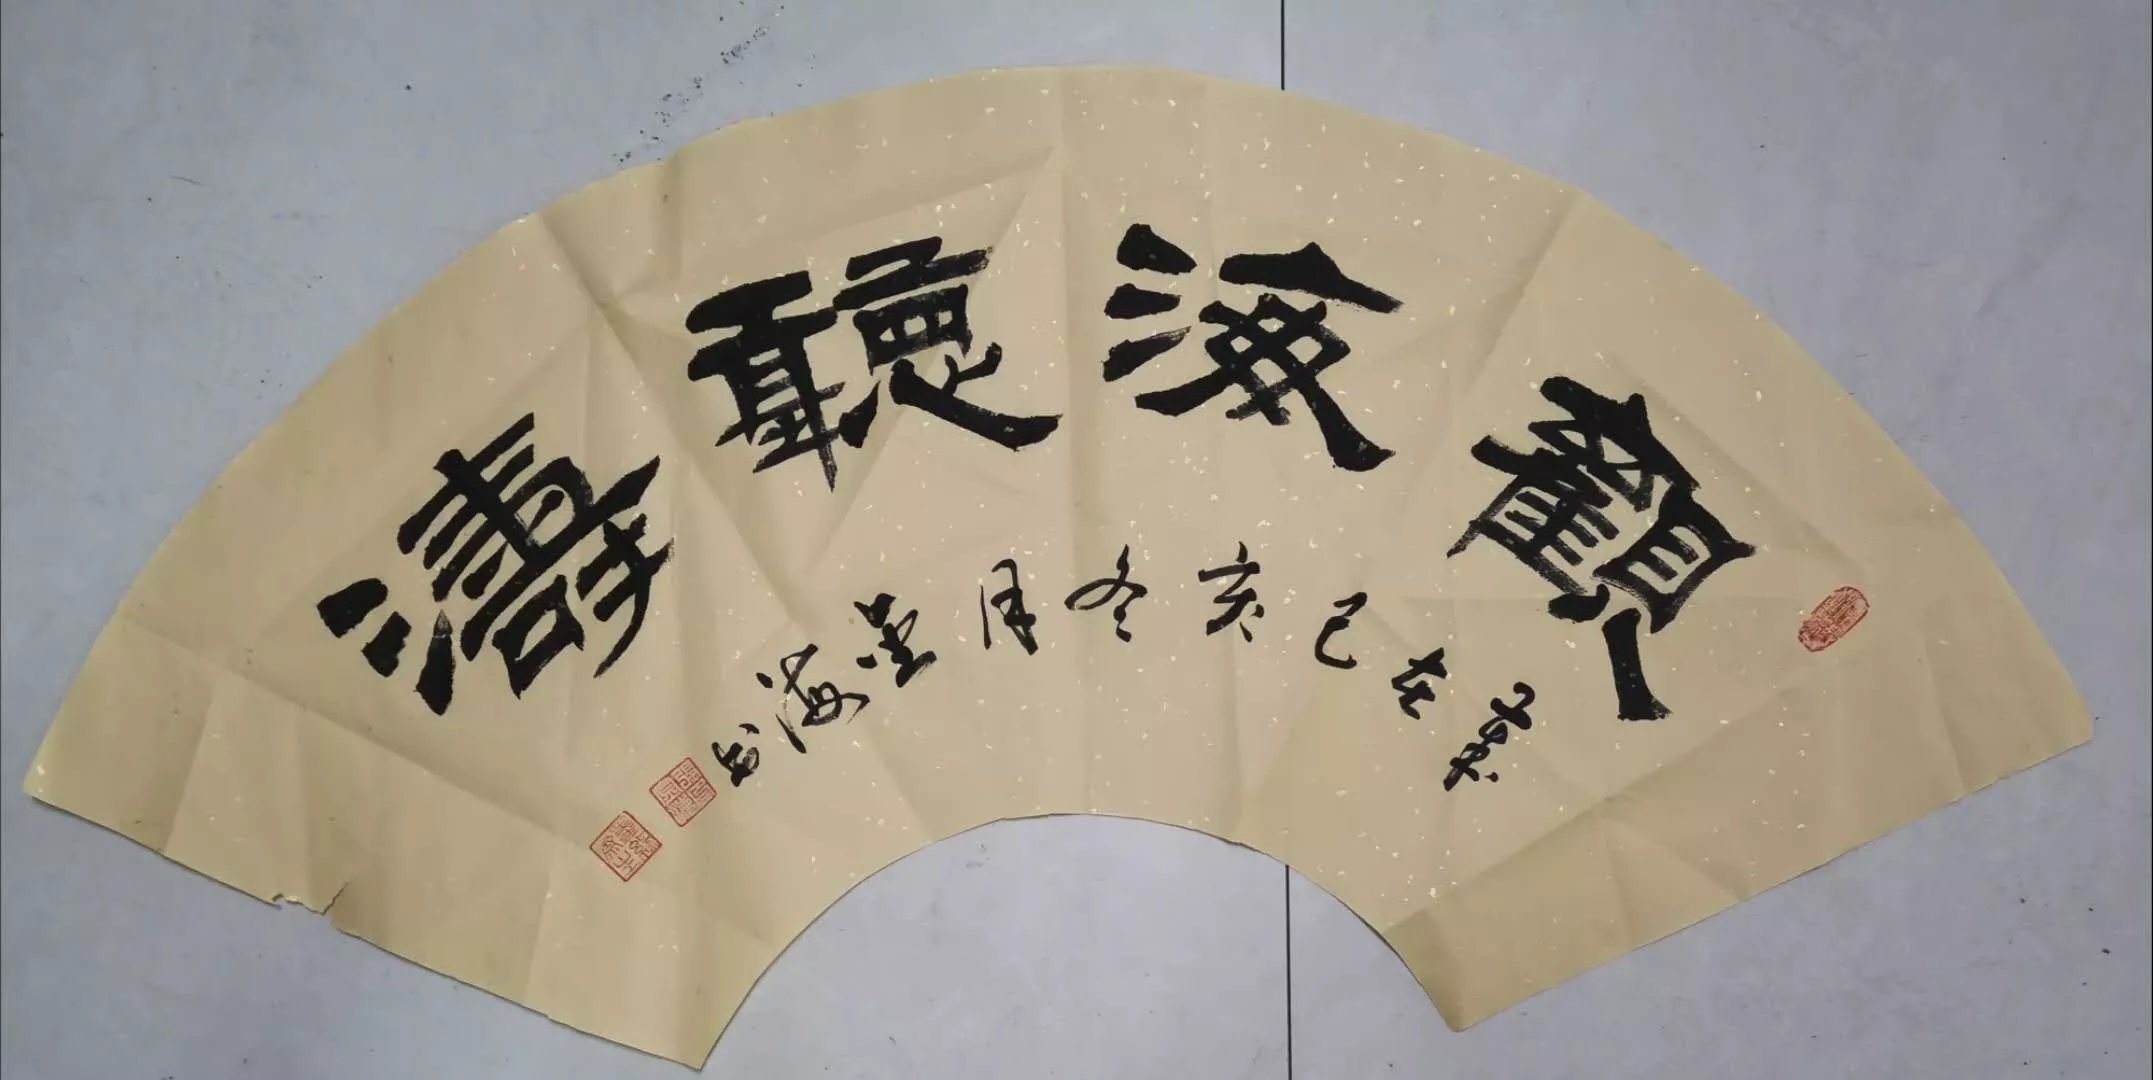 觀海聽濤
歲在己亥冬月星海書